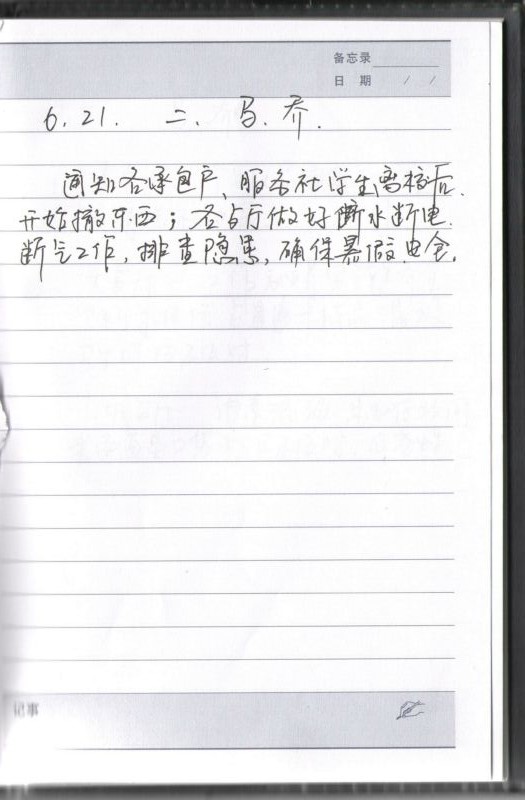 备忘录
日 期 / /
6.21. 二. 马. 乔.
通知各承包户、服务社学生离校后.
开始撤东西；各占厅做好断水断电.
断气工作,排查隐患,确保暑假安全.
记事